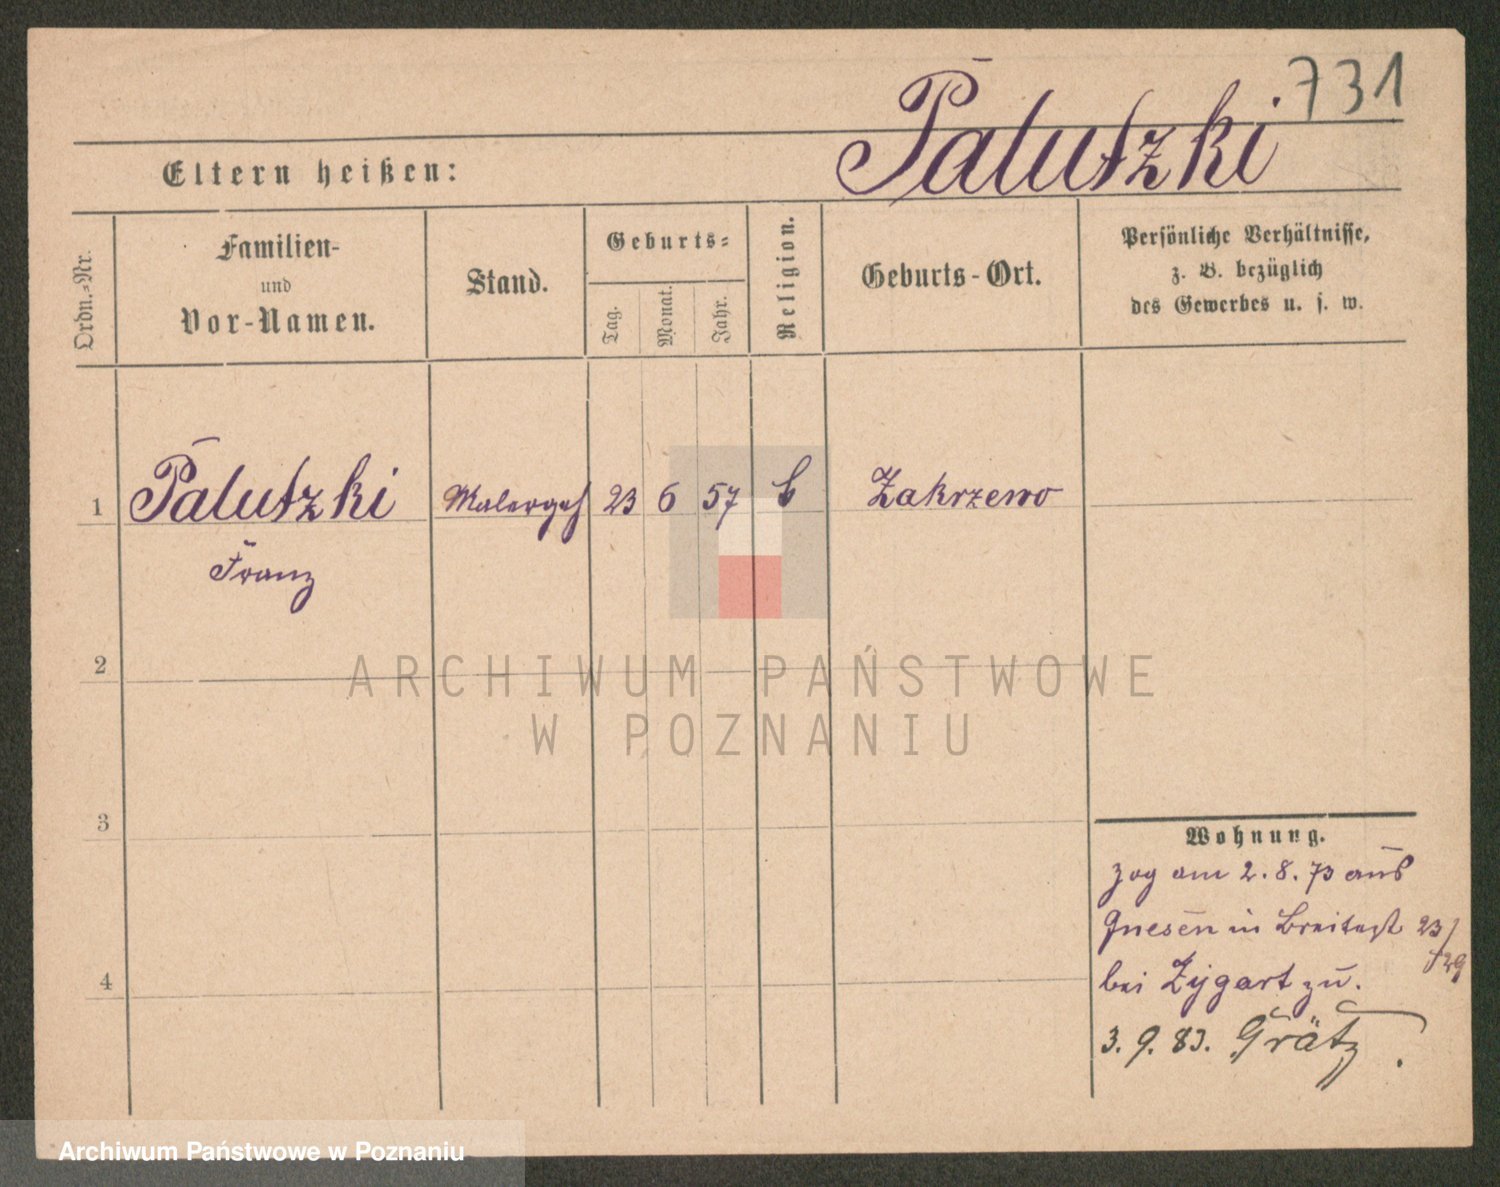 731
Palutzki
Eltern heißen:
Ordn.-Nr.
Familien-
und
Vor-Namen.
Stand.
Geburts-
Tag.
Monat.
Jahr.
Religion.
Geburts-Ort.
Persönliche Verhältnisse,
z. B. bezüglich
des Gewerbes u. s. w.
1 Palutzki Malergeh 23 6 57 k Zakrzewo
Franz
2
3
4
ARCHIWUM PAŃSTWOWE
W POZNANIU
Wohnung.
zog am 2. 8. 73 aus
Gnesen in Breitestr 23/
bei Zygart zu.
3. 9. 83. Grätz.
Archiwum Państwowe w Poznaniu